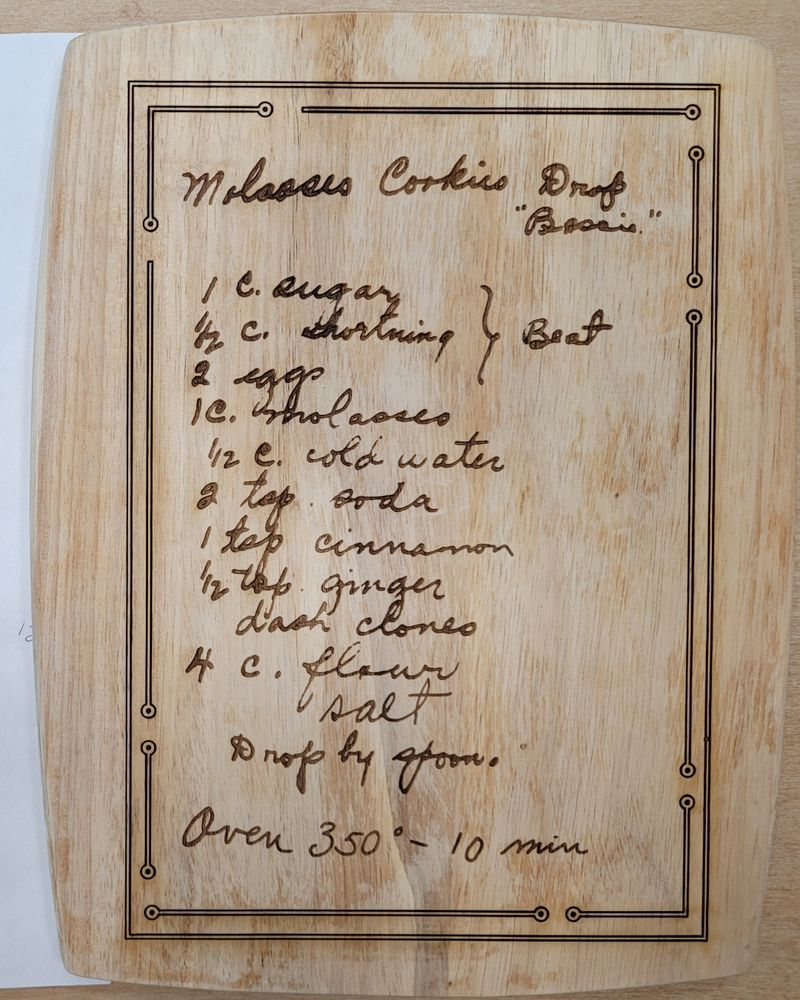 Molasses Cookies Drop
"Bossie."
1 C. sugar
1/2 C. shortning } Beat
2 eggs
1 C. molasses
1/2 C. cold water
2 tsp. soda
1 tsp cinnamon
1/2 tsp. ginger
dash cloves
4 c. flour
salt
Drop by spoon.
Oven 350° - 10 min